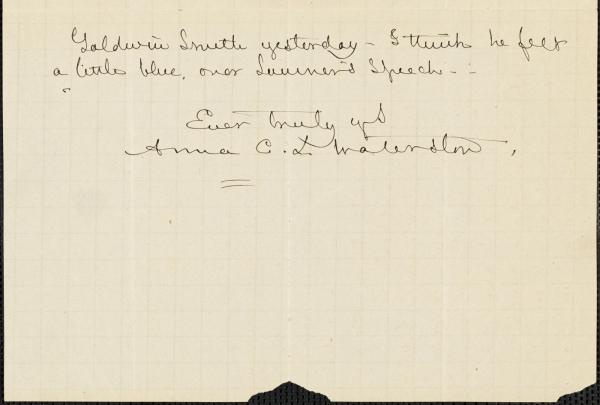 Goldwin Smith yesterday – I think he felt
a little blue, over Sumner's Speech –
Ever truly yrs
Anna C. L. Waterston,